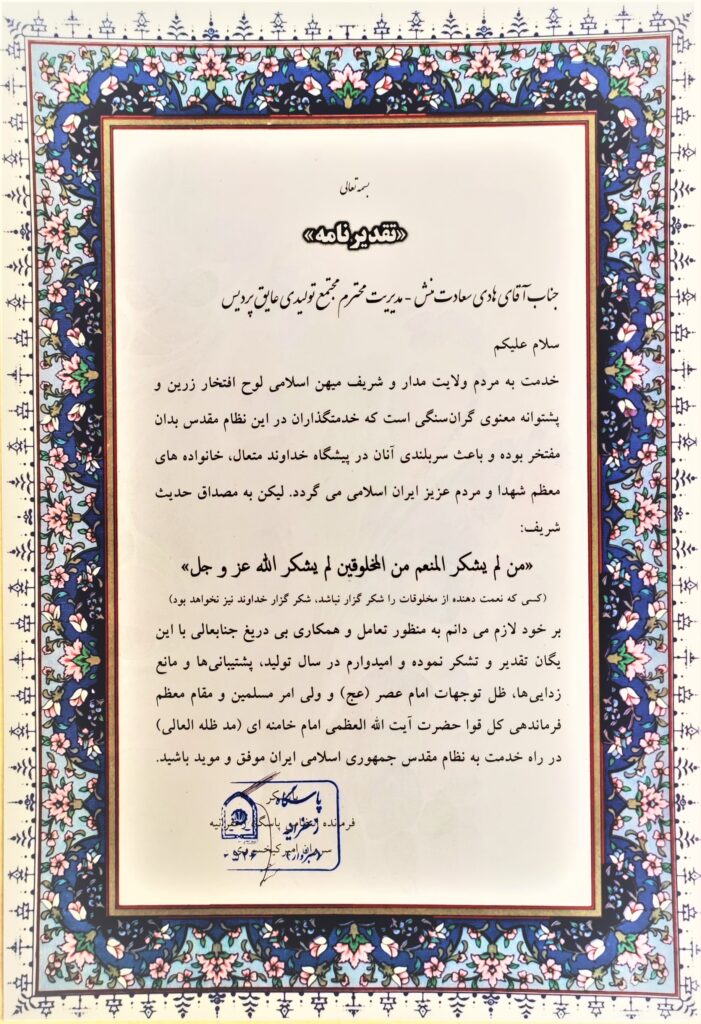 بسمه تعالی
«تقدیرنامه»
جناب آقای هادی سعادت منش - مدیریت محترم مجتمع تولیدی عایق پردیس
سلام علیکم
خدمت به مردم ولایت مدار و شریف میهن اسلامی لوح افتخار زرین و
پشتوانه معنوی گران‌سنگی است که خدمتگذاران در این نظام مقدس بدان
مفتخر بوده و باعث سربلندی آنان در پیشگاه خداوند متعال، خانواده های
معظم شهدا و مردم عزیز ایران اسلامی می گردد. لیکن به مصداق حدیث
شریف:
«من لم یشکر المنعم من المخلوقین لم یشکر الله عز و جل»
(کسی که نعمت دهنده از مخلوقات را شکر گزار نباشد، شکر گزار خداوند نیز نخواهد بود)
بر خود لازم می دانم به منظور تعامل و همکاری بی دریغ جنابعالی با این
یگان تقدیر و تشکر نموده و امیدوارم در سال تولید، پشتیبانی‌ها و مانع
زدایی‌ها، ظل توجهات امام عصر (عج) و ولی امر مسلمین و مقام معظم
فرماندهی کل قوا حضرت آیت الله العظمی امام خامنه ای (مد ظله العالی)
در راه خدمت به نظام مقدس جمهوری اسلامی ایران موفق و موید باشید.
پاسگاه
فرمانده